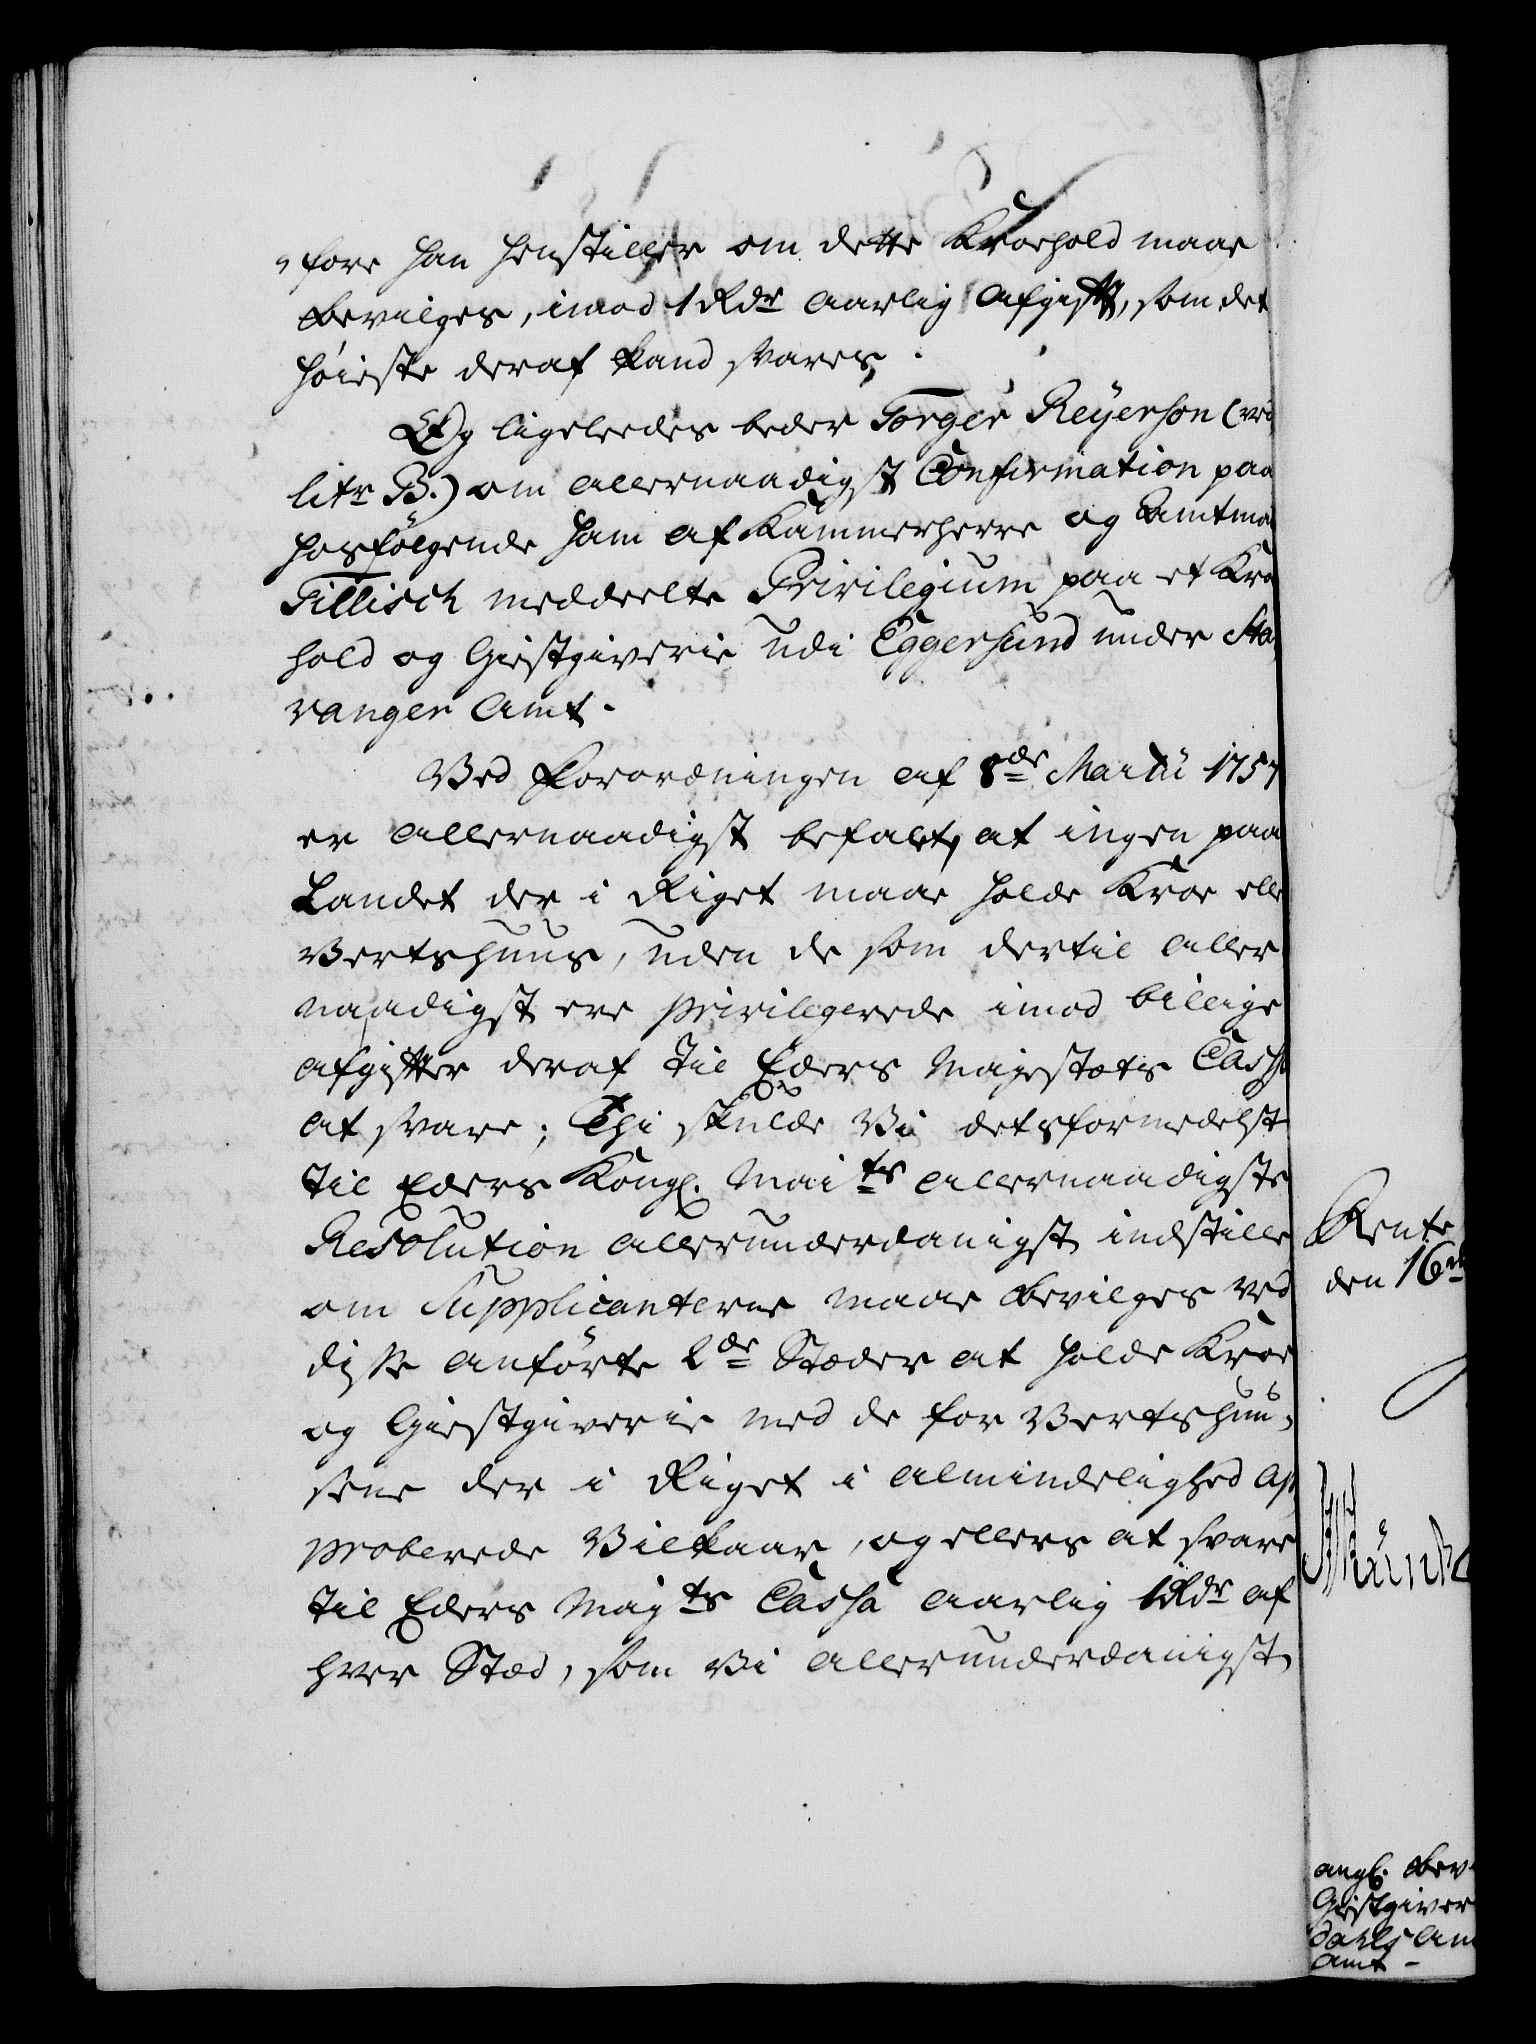 „fore han henstiller om dette Kroehold maae
bevilges, imod 1 Rdr aarlig Afgift, som det
høieste deraf kand svares.
Og ligeleedes beder Torger Reÿerson (vid
litr B.) om allernaadigst Confirmation paa
hosfølgende ham af Kammerherre og Amtma
Tillisch meddeelte Privilegium paa et Kro
hold og Giestgiverie udi Eggersund under Sta
vanger Amt.
Ved Forordningen af 8de Martii 1757
er allernaadigst befalet, at ingen paa
Landet der i Riget maae holde Kroe elle
Vertshuus, uden de som dertil aller
naadigst ere privilegerede imod billige
afgifter deraf til Eders Majestæts Cassa
at svare; Thi skulde vi detsformedelst
til Eders Kongl. Maits allernaadigste
Resolution allerunderdanigst indstille
om Supplicanterne maae bevilges ved
disse anførte 2de Stæder at holde Kroe
og Giestgiverie med de for Vertshuu-
sene der i Riget i almindelighed ap
proberede Vilkaar, og ellers at svare
til Eders Mayts Cassa aarlig 1 Rdr af
hver Stæd, som vi allerunderdanigst
Rente
den 16de
angl. bev
Giestgiver
dahls Am
Amt -